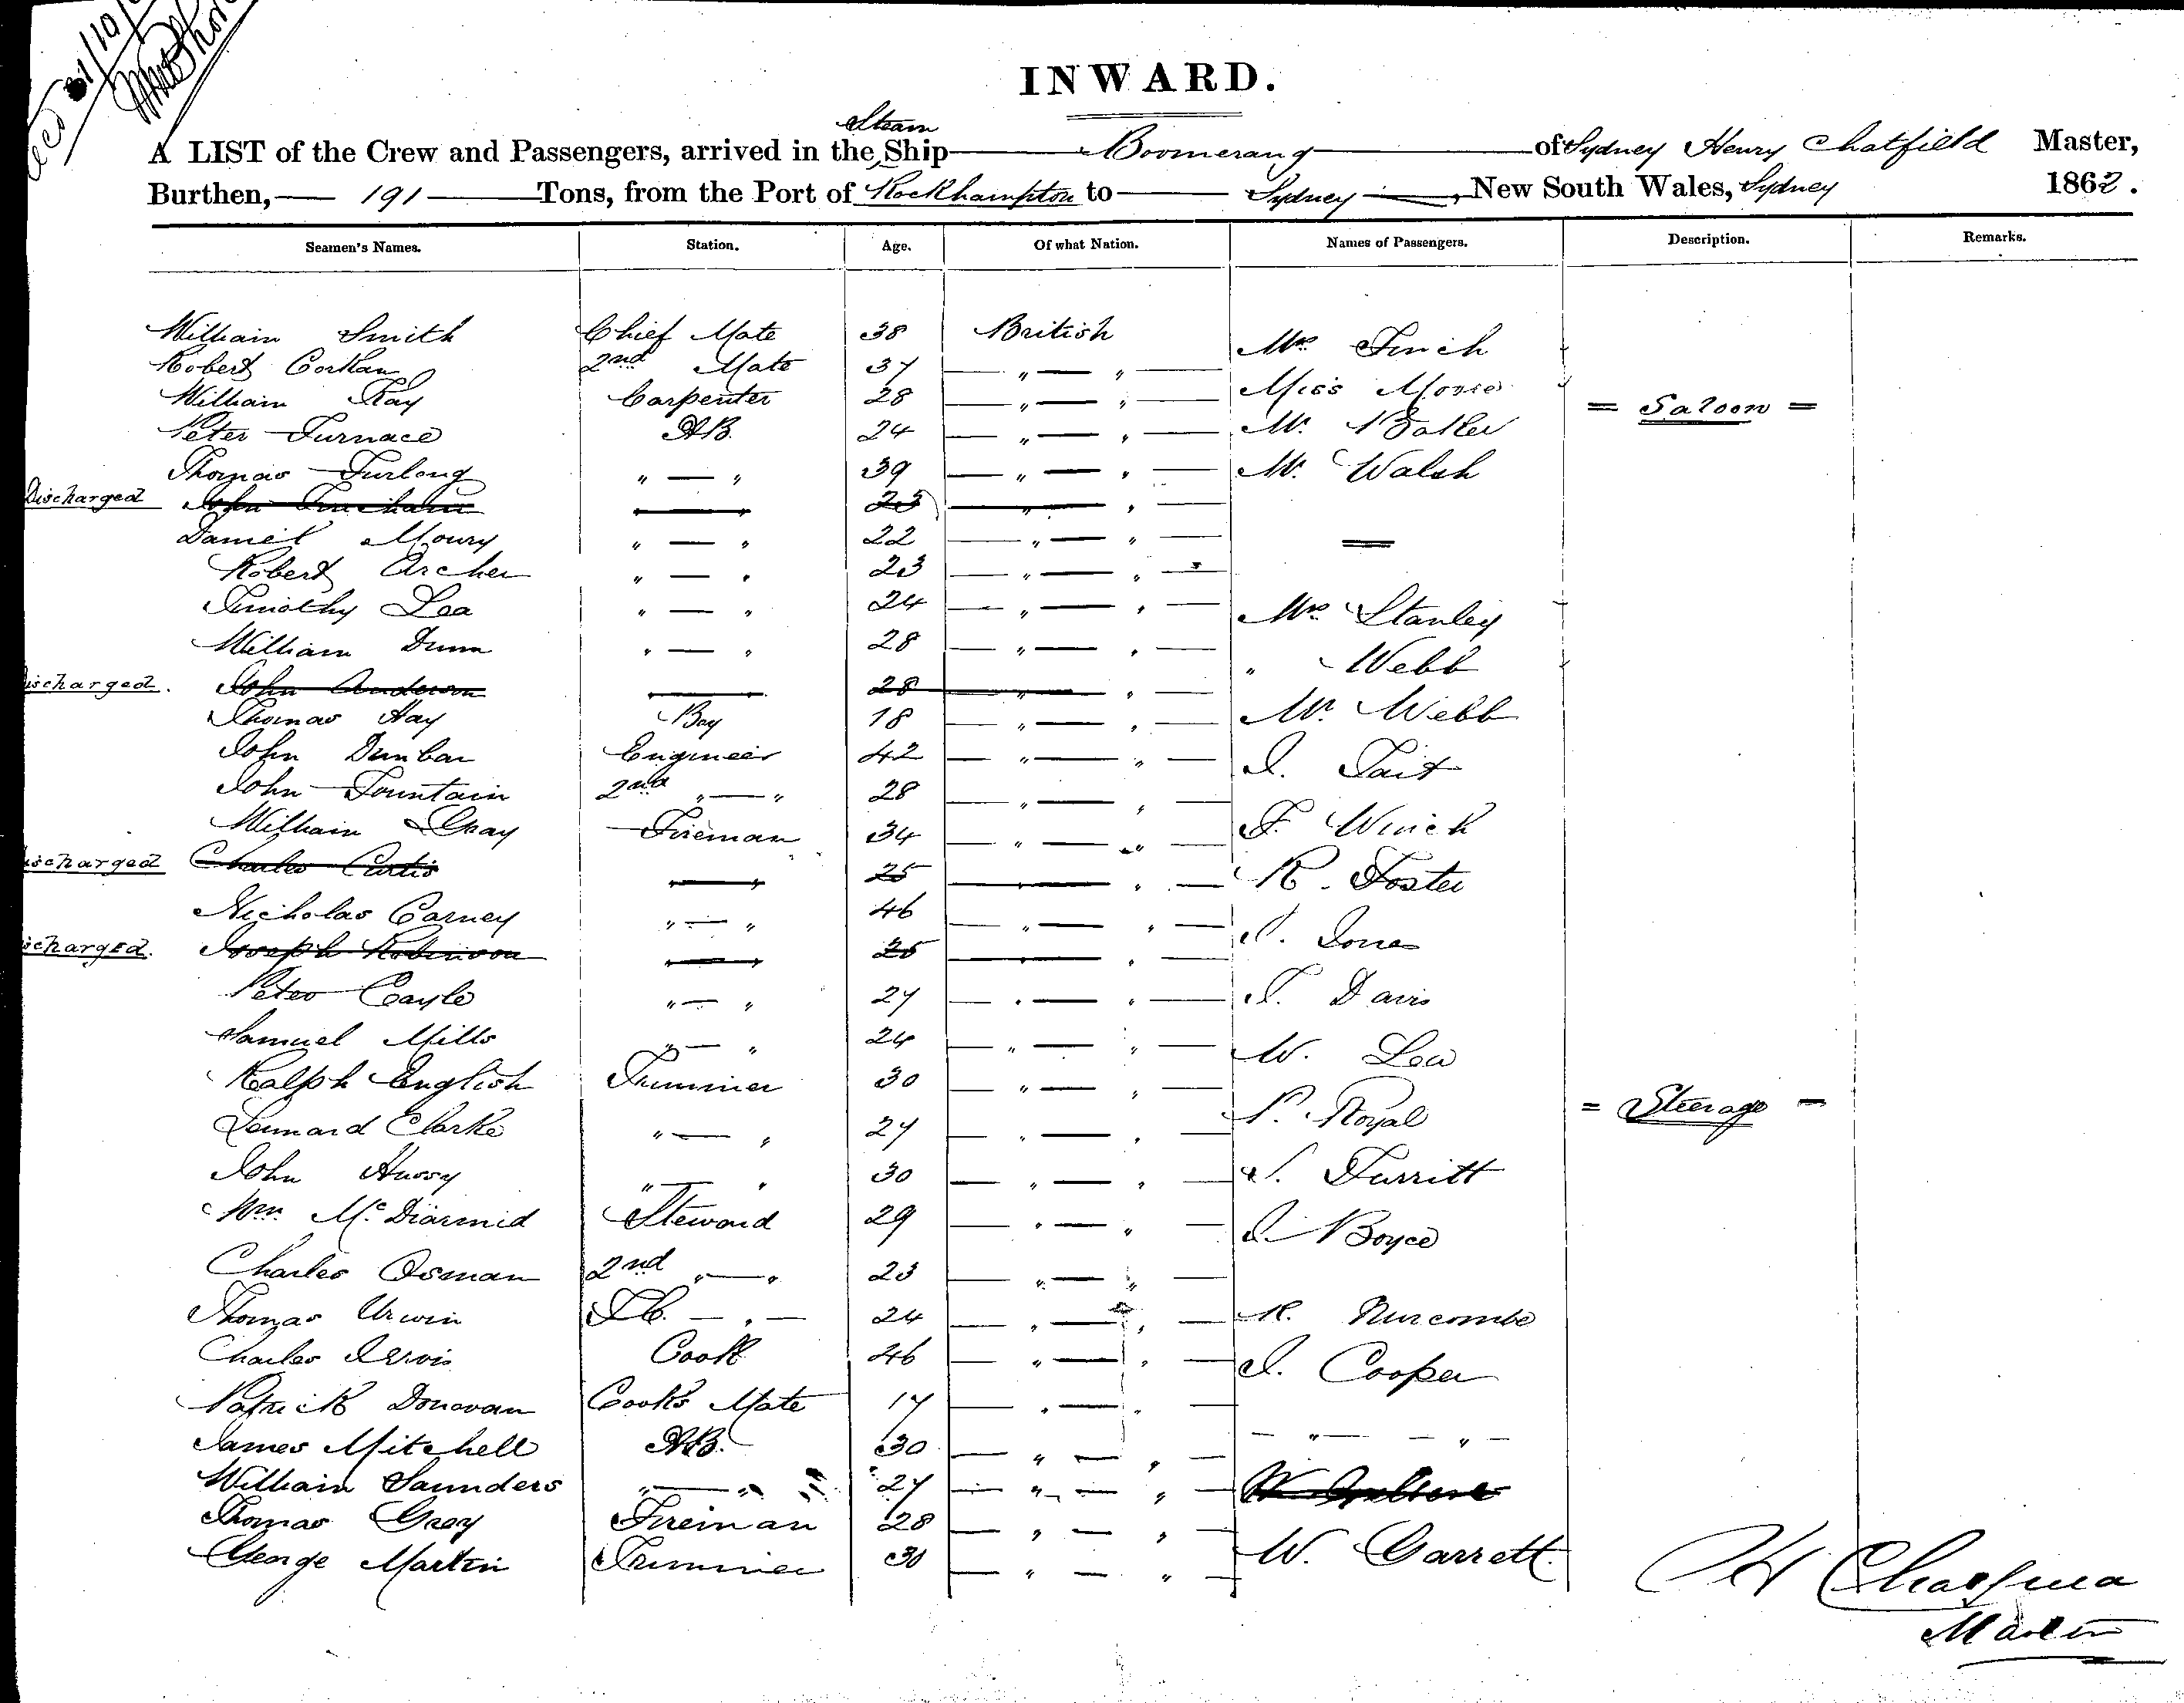 31/10/
INWARD.
Steam
A LIST of the Crew and Passengers, arrived in the Ship Boomerang of Sydney Henry Chatfield Master,
Burthen, 191 Tons, from the Port of Rockhampton to Sydney, New South Wales, Sydney 1862.
Seamen's Names. Station. Age. Of what Nation. Names of Passengers. Description. Remarks.
William Smith Chief Mate 38 British Mrs Finch
Robert Corkan 2nd Mate 37 " " Miss
William Kay Carpenter 28 " " = Saloon =
Peter Furnace AB. 24 " " Mr.
Thomas Furlong " " 39 " " Mr. Walsh
Discharged John 23 " "
Daniel Moury " " 22 " "
Robert Archer " " 23 " "
Timothy Lea " " 24 " " Mrs Stanley
William Dunn " " 28 " " " Webb
ischarged. John Anderson 28 " "
Thomas Hay Boy 18 " " Mr. Webb
John Dunbar Engineer 42 " " J. Tait
John Fountain 2nd " " 28 " "
William Gray Fireman 34 " " F. Winch
ischarged Charles Curtis 25 " " R. Foster
Nicholas Carney " " 46 " "
scharged. Joseph Robinson 25 " " J. Jones
Peter Cayle " " 27 " " T. Davis
Samuel Mills " " 24 " " W. Lea
Ralph English Trimmer 30 " "
Lennard Clarke " " 27 " " P. Royal = Steerage =
John Hussy " " 30 " " S. Turritt
Wm. McDiarmid Steward 29 " " J. Boyce
Charles Osman 2nd " " 23 " "
Thomas Urwin " 24 " " R. Nurcombe
Charles Cook 46 " " J. Cooper
Patrick Donovan Cook's Mate 17 " "
James Mitchell AB. 30 " " " "
William Saunders " " 27 " "
Thomas Grey Fireman 28 " "
George Martin Trimmer 30 " " W. Garrett.
H Chatfield
Master